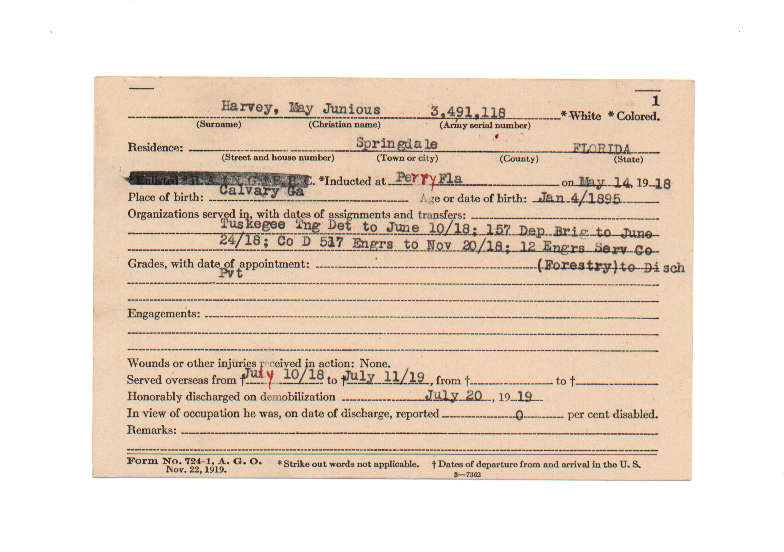 1
Harvey, May Junious 3,491,118 * White * Colored.
(Surname) (Christian name) (Army serial number)
Residence: Springdale FLORIDA
(Street and house number) (Town or city) (County) (State)
*Inducted at Perry Fla on May 14, 1918
Place of birth: Calvary Ga Age or date of birth: Jan 4/1895
Organizations served in, with dates of assignments and transfers:
Tuskegee Tng Det to June 10/18; 157 Dep Brig to June
24/18; Co D 517 Engrs to Nov 20/18; 12 Engrs Serv Co
Grades, with date of appointment: (Forestry)to Disch
Pvt
Engagements:
Wounds or other injuries received in action: None.
Served overseas from † July 10/18 to † July 11/19, from † to †
Honorably discharged on demobilization July 20, 1919
In view of occupation he was, on date of discharge, reported 0 per cent disabled.
Remarks:
Form No. 724-1, A. G. O. * Strike out words not applicable. † Dates of departure from and arrival in the U. S.
Nov. 22, 1919. 3—7302